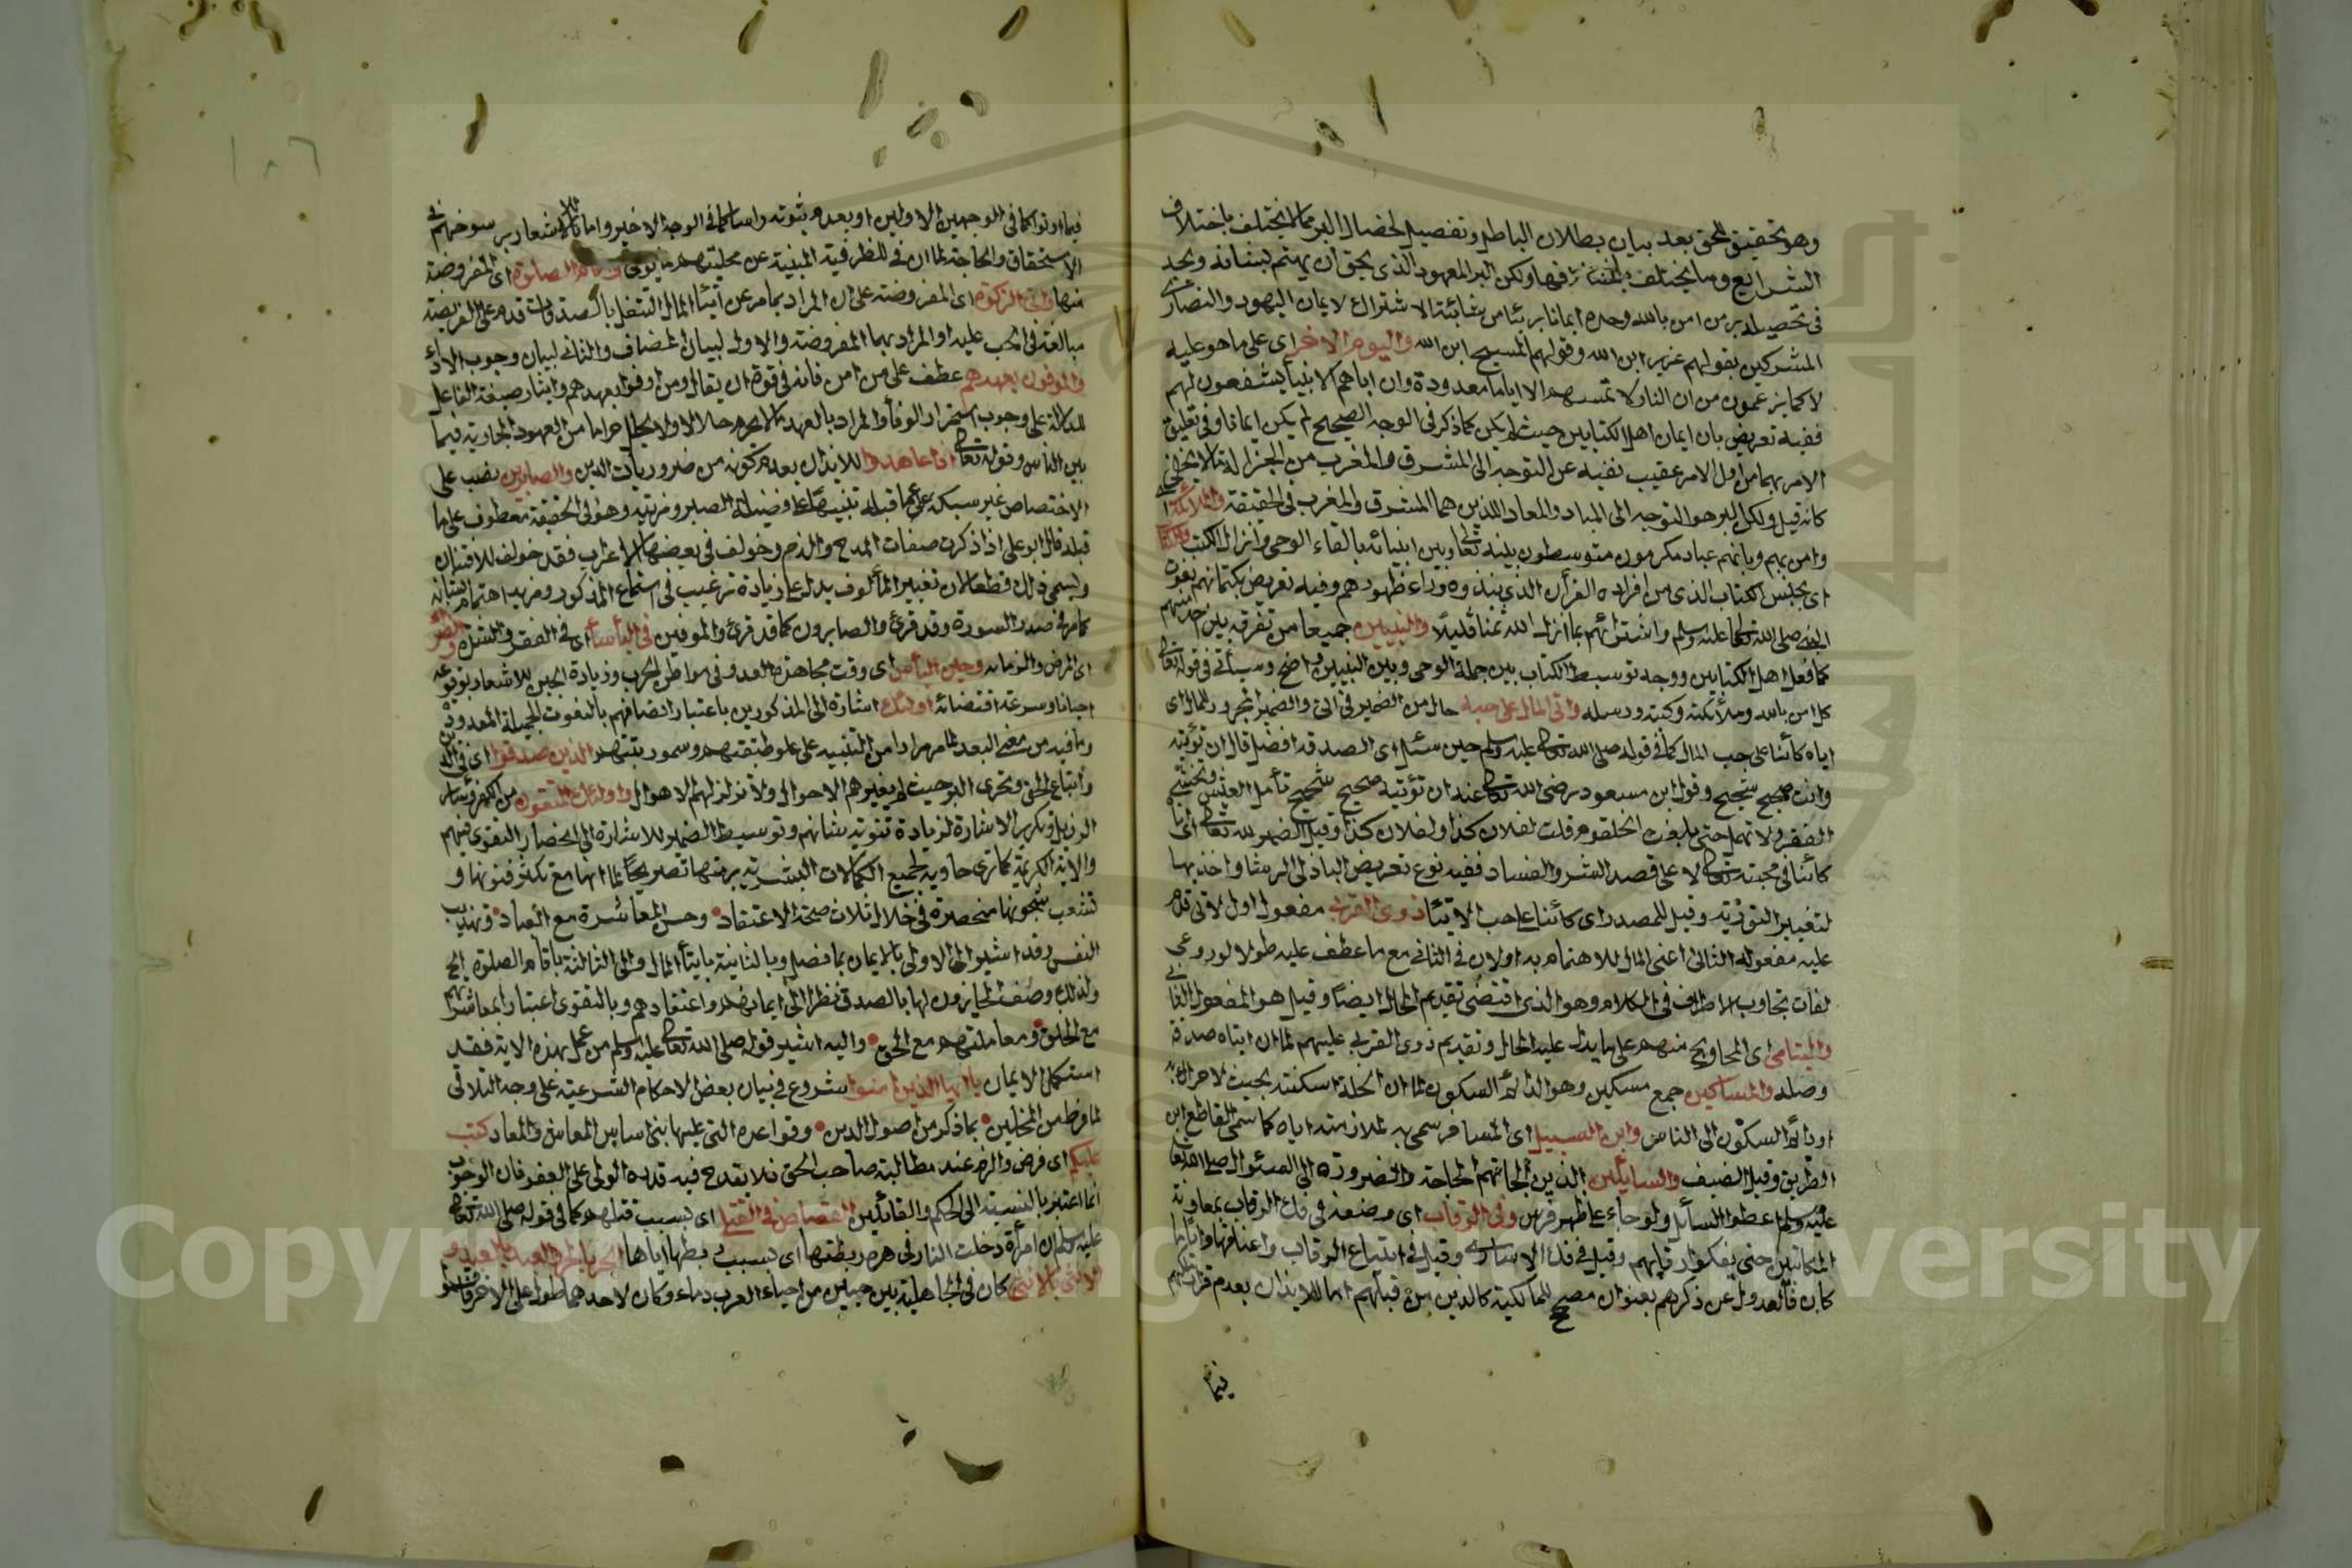 وهو تحقيق للحق بعد بيان بطلان الباطل وتفصيل لخصال البر مما لا يختلف باختلاف
الشرايع وما يختلف باختلافها ولكن البر المعهود الذي يحق ان يهتم بشانه ويجد
في تحصيله بر من امن بالله وحده ايمانا بريئا من شائبة الاشتراك لا يمان اليهود والنصارى
المشركين بقولهم عزير ابن الله وقولهم المسيح ابن الله واليوم الاخر اى على ما هو عليه
لا كما يزعمون من ان النار لا تمسهم الا اياما معدودة وان اباهم الانبيا يشفعون لهم
ففيه تعريض بان ايمان اهل الكتابين حيث لم يكن كما ذكر فى الوجه الصحيح لم يكن ايمانا وفى تعليق
الامر بهما من اول الامر عقيب نفيه عن التوجه الى المشرق والمغرب من الجزالة ما لا يخفى
كانه قيل ولكن البر هو التوجه الى المبدا والمعاد اللذين هما المشرق والمغرب فى الحقيقة والملائكة اى
وامن بهم وبانهم عباد مكرمون متوسطون بينه تعالى وبين انبيائه بالقاء الوحى وانزال الكتب والكتاب
اى بجنس الكتاب الذى من افراده القرأن الذى نبذوه وراء ظهورهم وفيه تعريض بكتمانهم نعوت
النبى صلى الله تعالى عليه وسلم واشترائهم بما انزل الله ثمنا قليلا والنبيين جميعا من تفرقه بين احد منهم
كما فعل اهل الكتابين ووجه توسيط الكتاب بين حملة الوحى وبين النبيين واضح وسيأتى فى قوله تعالى
كل امن بالله وملائكته وكتبه ورسله واتى المال على حبه حال من الضمير فى اتى والضمير المجرور للمال اى
اياه كائنا على حب المال كما فى قوله صلى الله تعالى عليه وسلم حين سئل اى الصدقه افضل قال ان تؤتيه
وانت صحيح شحيح وقول ابن مسعود رضى الله تعالى عنه ان تؤتيه صحيح شحيح تأمل العيش وتخشى
الفقر ولا تمهل حتى بلغت الحلقوم قلت لفلان كذا ولفلان كذا وقيل الضمير لله تعالى اى
كائنا فى محبته تعالى لا على قصد الشر والفساد ففيه نوع تعريض الباذلى الرشا واخذيها
لتغيير التوزية وقيل للمصدر اى كائنا على حب الايتا ذوى القربى مفعول اول لاتى قدم
عليه مفعوله الثانى اعنى المال للاهتمام به او لان فى الثانى مع ما عطف عليه طولا لو روعى
لفات تجاوب الاطراف فى الكلام وهو الذى اقتضى تقديم الحال ايضا وقيل هو المفعول الثانى
واليتامى اى المحاويج منهم على ما يدل عليه الحال وتقديم ذوى القربى عليهم لما ان ايتاه صدقة
وصله والمساكين جمع مسكين وهو الدائم السكون لما ان الخلة اسكنته بحيث لا حراك به
او دائم السكون الى الناس وابن السبيل اى المسافر سمى به لملازمته اياه كما سمى القاطع ابن
الطريق وقيل الضيف والسائلين الذين الجاتهم الحاجة والضرورة الى السئوال صلى الله تعالى
عليه وسلم اعطوا السائل ولو جاء على ظهر فرس وفى الرقاب اى وضعه فى فك الرقاب بمعاونة
المكاتبين حتى يفكوا رقابهم وقيل فى فك الاسارى وقيل فى ابتياع الرقاب واعتاقها وايا ما
كان فالعدول عن ذكرهم بعنوان مصحح للمالكية كالذين من قبلهم اما للايذان بعدم قرار ملكهم
فيما
فيما اوتوا كما فى الوجهين الاولين او بعدم ثبوته راسا كما فى الوجه الاخير واما للاشعار برسوخهم فى
الاستحقاق والحاجة لما ان فى للظرفية المنبئة عن محليتهم لما يؤتى واقام الصلوة اى المفروضة
منها واتى الزكوة اى المفروضة على ان المراد بما مر عن ايتاء المال التنفل بالصدقات قدم على الفريضة
مبالغة فى الحب عليه او المراد بهما المفروضة والاول لبيان المضاف والثانى لبيان وجوب الاداء
والموفون بعهدهم عطف على من امن فانه فى قوة ان يقال ومن اوفوا بعهدهم وايثار صيغة الفاعل
للدلالة على وجوب استمرار الوفاء والمراد بالعهد ما لا يحرم حلالا ولا يحلل حراما من العهود الجارية فيما
بين الناس وقوله تعالى اذا عاهدوا للايذان بعدم كونه من ضروريات الدين والصابرين نصب على
الاختصاص غير سبكه عما قبله تنبيها على فضيلة الصبر ومزيته وهو فى الحقيقة معطوف على ما
قبله قال ابو على اذا ذكرت صفات المدح والذم وخولف فى بعضها الاعراب فقد خولف للافتنان
ويسمى ذلك قطعا لان تغيير المألوف يدل على زيادة ترغيب فى استماع المذكور ومزيد اهتمام بشانه
كما مر فى صدر السورة وقد قرئ والصابرون كما قد قرئ والموفين فى البأساء اى فى الفقر والشدة والضراء
اى المرض والزمانه وحين البأس اى وقت مجاهدة العدو فى مواطن الحرب وزيادة الحين للاشعار بوقوعه
احيانا وسرعة انقضائه اولئك اشارة الى المذكورين باعتبار اتصافهم بالنعوت الجميلة المعدودة
وما فيه من معنى البعد لما مر مرارا من التنبيه على علو طبقتهم وسمو رتبتهم الذين صدقوا اى فى الدين
واتباع الحق وتحرى البر حيث لم يغيرهم الاحوال ولا تزلزلهم الاهوال واولئك هم المتقون من الكفر وسائر
الرذيل وتكرير الاشارة لزيادة تنويه شانهم وتوسيط الضمير للاشارة الى انحصار التقوى فيهم
والاية الكريمة كما ترى حاوية لجميع الكمالات البشرية برمتها تصريحا لما انها مع تكثر فنونها و
تشعب شجونها منحصرة فى خلال ثلاث صحة الاعتقاد وحسن المعاشرة مع العباد وتهذيب
النفس وقد اشير الى الاولى بالايمان بما فصل وبالثانية بايتاء المال والى الثالثة باقام الصلوة الخ
ولذلك وصف الحايزون لها بالصدق نظرا الى ايمانهم واعتقادهم وبالتقوى اعتبارا بمعاشرتهم
مع الخلق ومعاملتهم مع الحق واليه اشير قوله صلى الله تعالى عليه وسلم من عمل بهذه الاية فقد
استكمل الايمان يا ايها الذين امنوا شروع فى بيان بعض الاحكام الشرعية على وجه التلافى
لما فرط من المخلين بما ذكر من اصول الدين وقواعده التى عليها بنى اساس المعاش والمعاد كتب
عليكم اى فرض والزم عند مطالبة صاحب الحق فلا يقدح فيه قدرة الولى على العفو فان الوجوب
انما اعتبر بالنسبة الى الحكم والقاتلين القصاص فى القتلى اى بسبب قتلهم كما فى قوله صلى الله تعالى
عليه وسلم ان امرأة دخلت النار فى هرة ربطتها اى بسبب ربطها اياها الحر بالحر والعبد بالعبد و
الانثى بالانثى كان فى الجاهلية بين حيين من احياء العرب دماء وكان لاحدهما طول على الاخر فاقسموا
١٨٦
Copyright © King Saud University